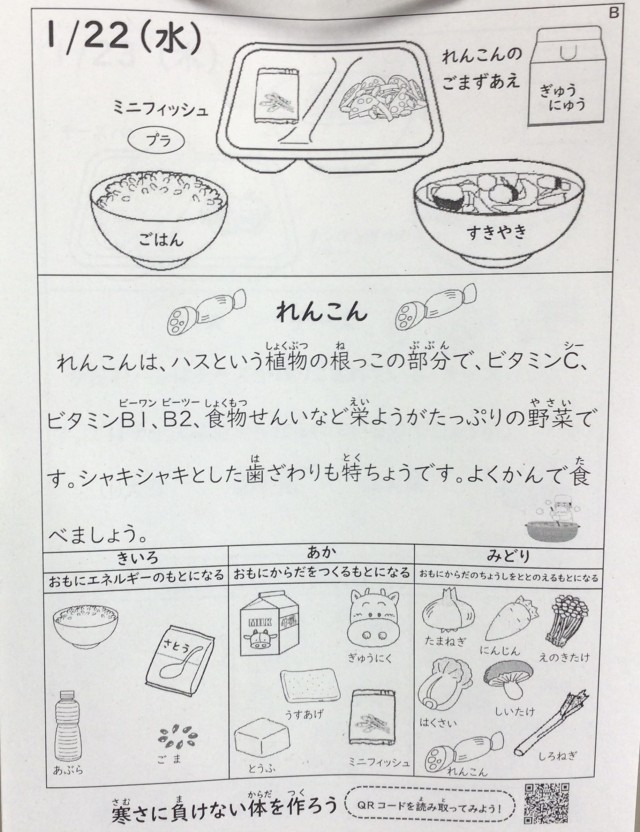 B
1/22(水)
れんこんの
ごまずあえ
ぎゅう
にゅう
ミニフィッシュ
プラ
ごはん
すきやき
れんこん
れんこんは、ハスという植物の根っこの部分で、ビタミンC、
しょくぶつ ね ぶぶん シー
ビタミンB1、B2、食物せんいなど栄ようがたっぷりの野菜で
ビーワン ビーツー しょくもつ えい やさい
す。シャキシャキとした歯ざわりも特ちょうです。よくかんで食
は とく た
べましょう。
きいろ
あか
みどり
おもにエネルギーのもとになる
おもにからだをつくるもとになる
おもにからだのちょうしをととのえるもとになる
さとう
あぶら
ごま
MILK
ぎゅうにく
うすあげ
とうふ
ミニフィッシュ
たまねぎ
にんじん
えのきたけ
はくさい
しいたけ
れんこん
しろねぎ
寒さに負けない体を作ろう
さむ ま からだ つく
QRコードを読み取ってみよう!
よ と